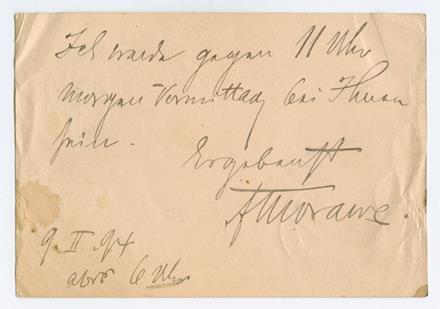 Ich werde gegen 11 Uhr
morgen Vormittag bei Ihnen
sein.
Ergebenst
9. II. 94
6 Uhr